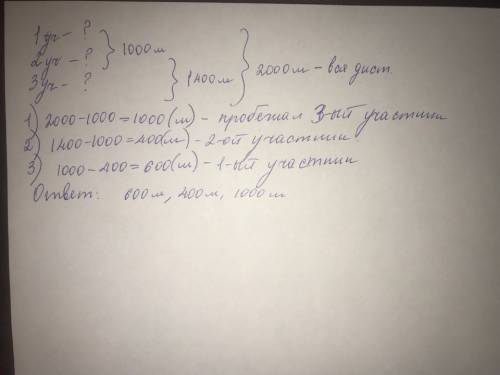 1 уч - ?
2 уч - ? } 1000 м
3 уч - ? } 1400 м } 2000 м - вся дист.
1) 2000-1000=1000(м) - пробежал 3-ый участник
2) 1400-1000=400(м) - 2-ой участник
3) 1000-400=600(м) - 1-ый участник
Ответ: 600м, 400м, 1000м